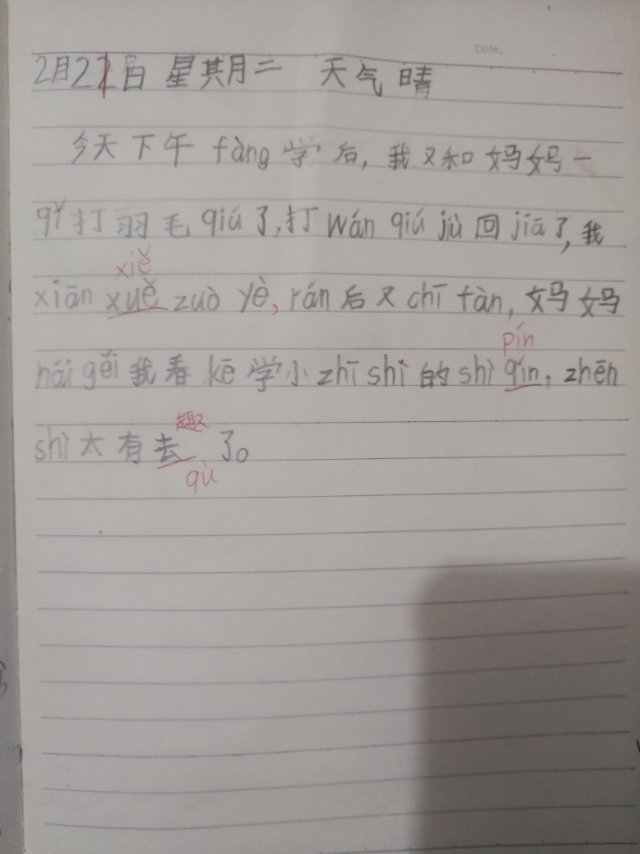 Date.
2月21日 星期二 天气晴
今天下午 fàng 学后，我又和妈妈一
qǐ 打羽毛 qiú 了，打 wán qiú jiù 回 jiā 了，我
xiě
xiān xuě zuò yè，rán 后又 chī fàn，妈妈
pín
hái gěi 我看 kē 学小 zhī shi 的 shì qín，zhēn
趣
shì 太有去了。
qù